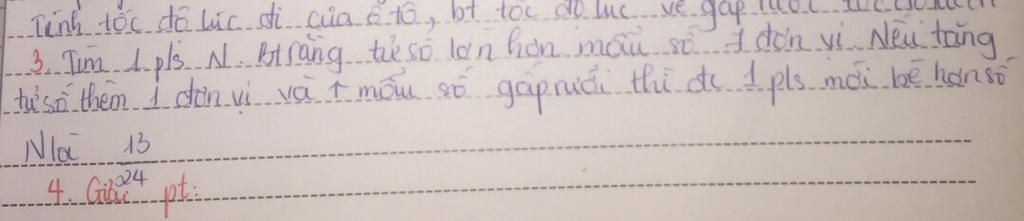 Tính tốc độ lúc đi của ô tô, bt tốc độ lúc về gấp rưỡi
3. Tìm 1 pls N. Bt rằng tử số lớn hơn mẫu số 1 đơn vị. Nếu tăng
tử số thêm 1 đơn vị và ↑ mẫu số gấp rưỡi thì đc 1 pls mới bé hơn số
N là 13
24
4. Giải pt: